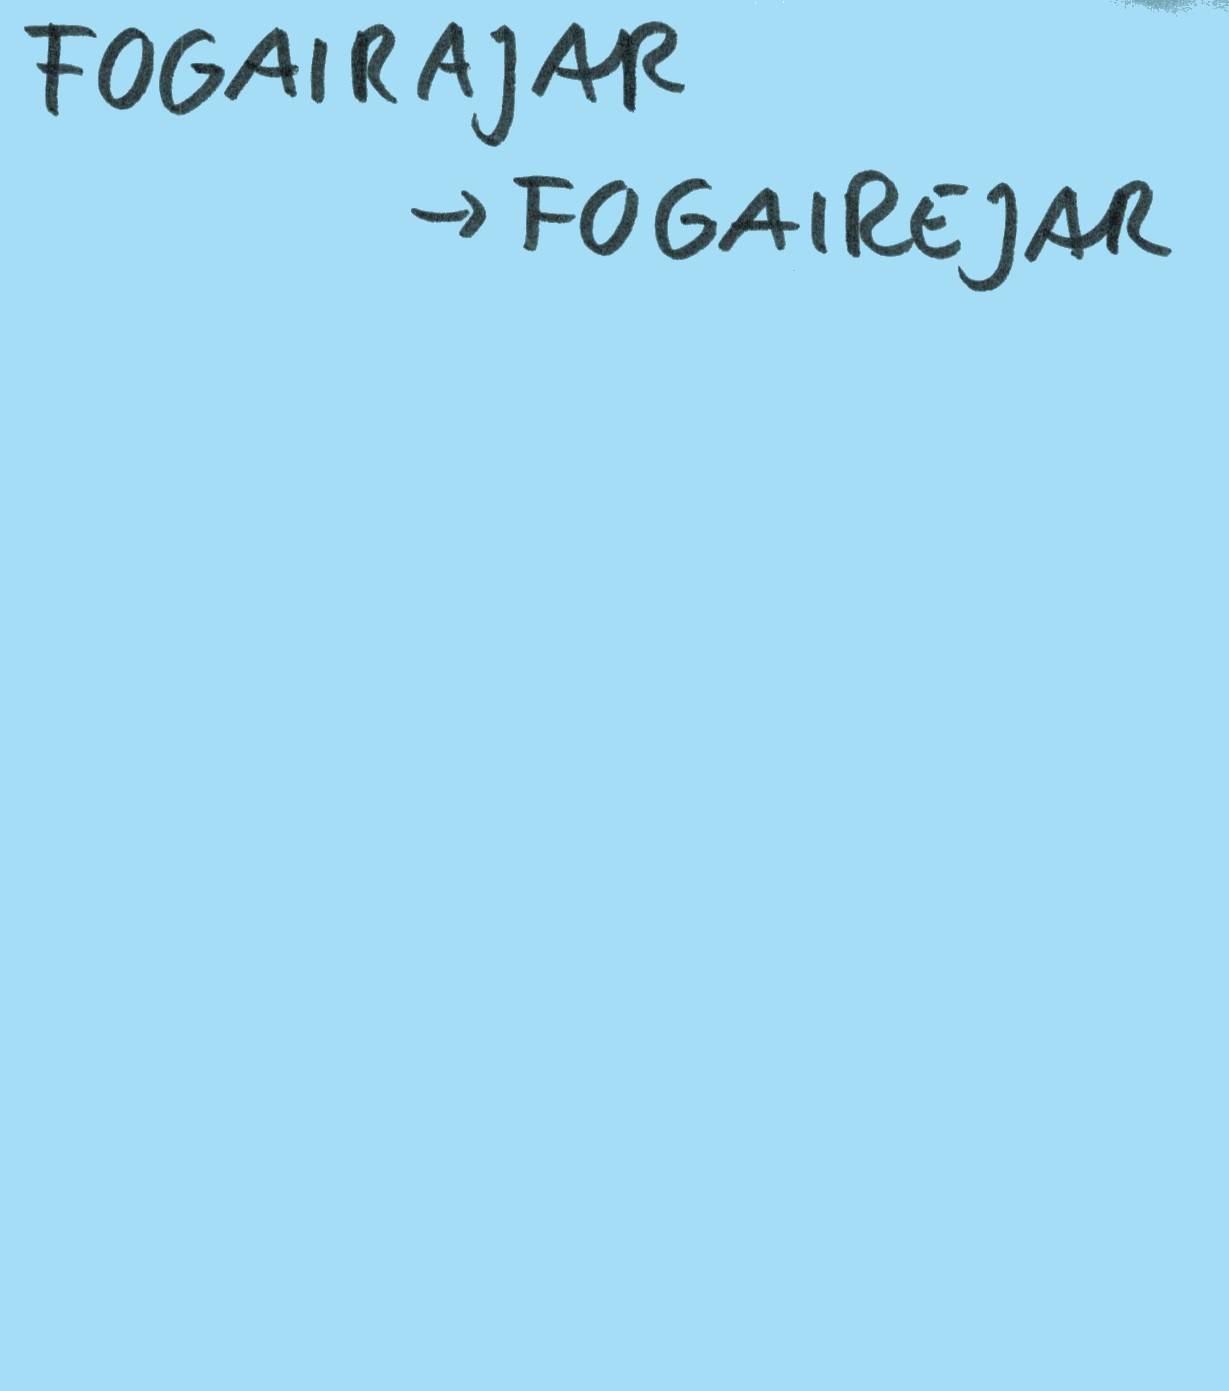 FOGAIRAJAR
→ FOGAIREJAR